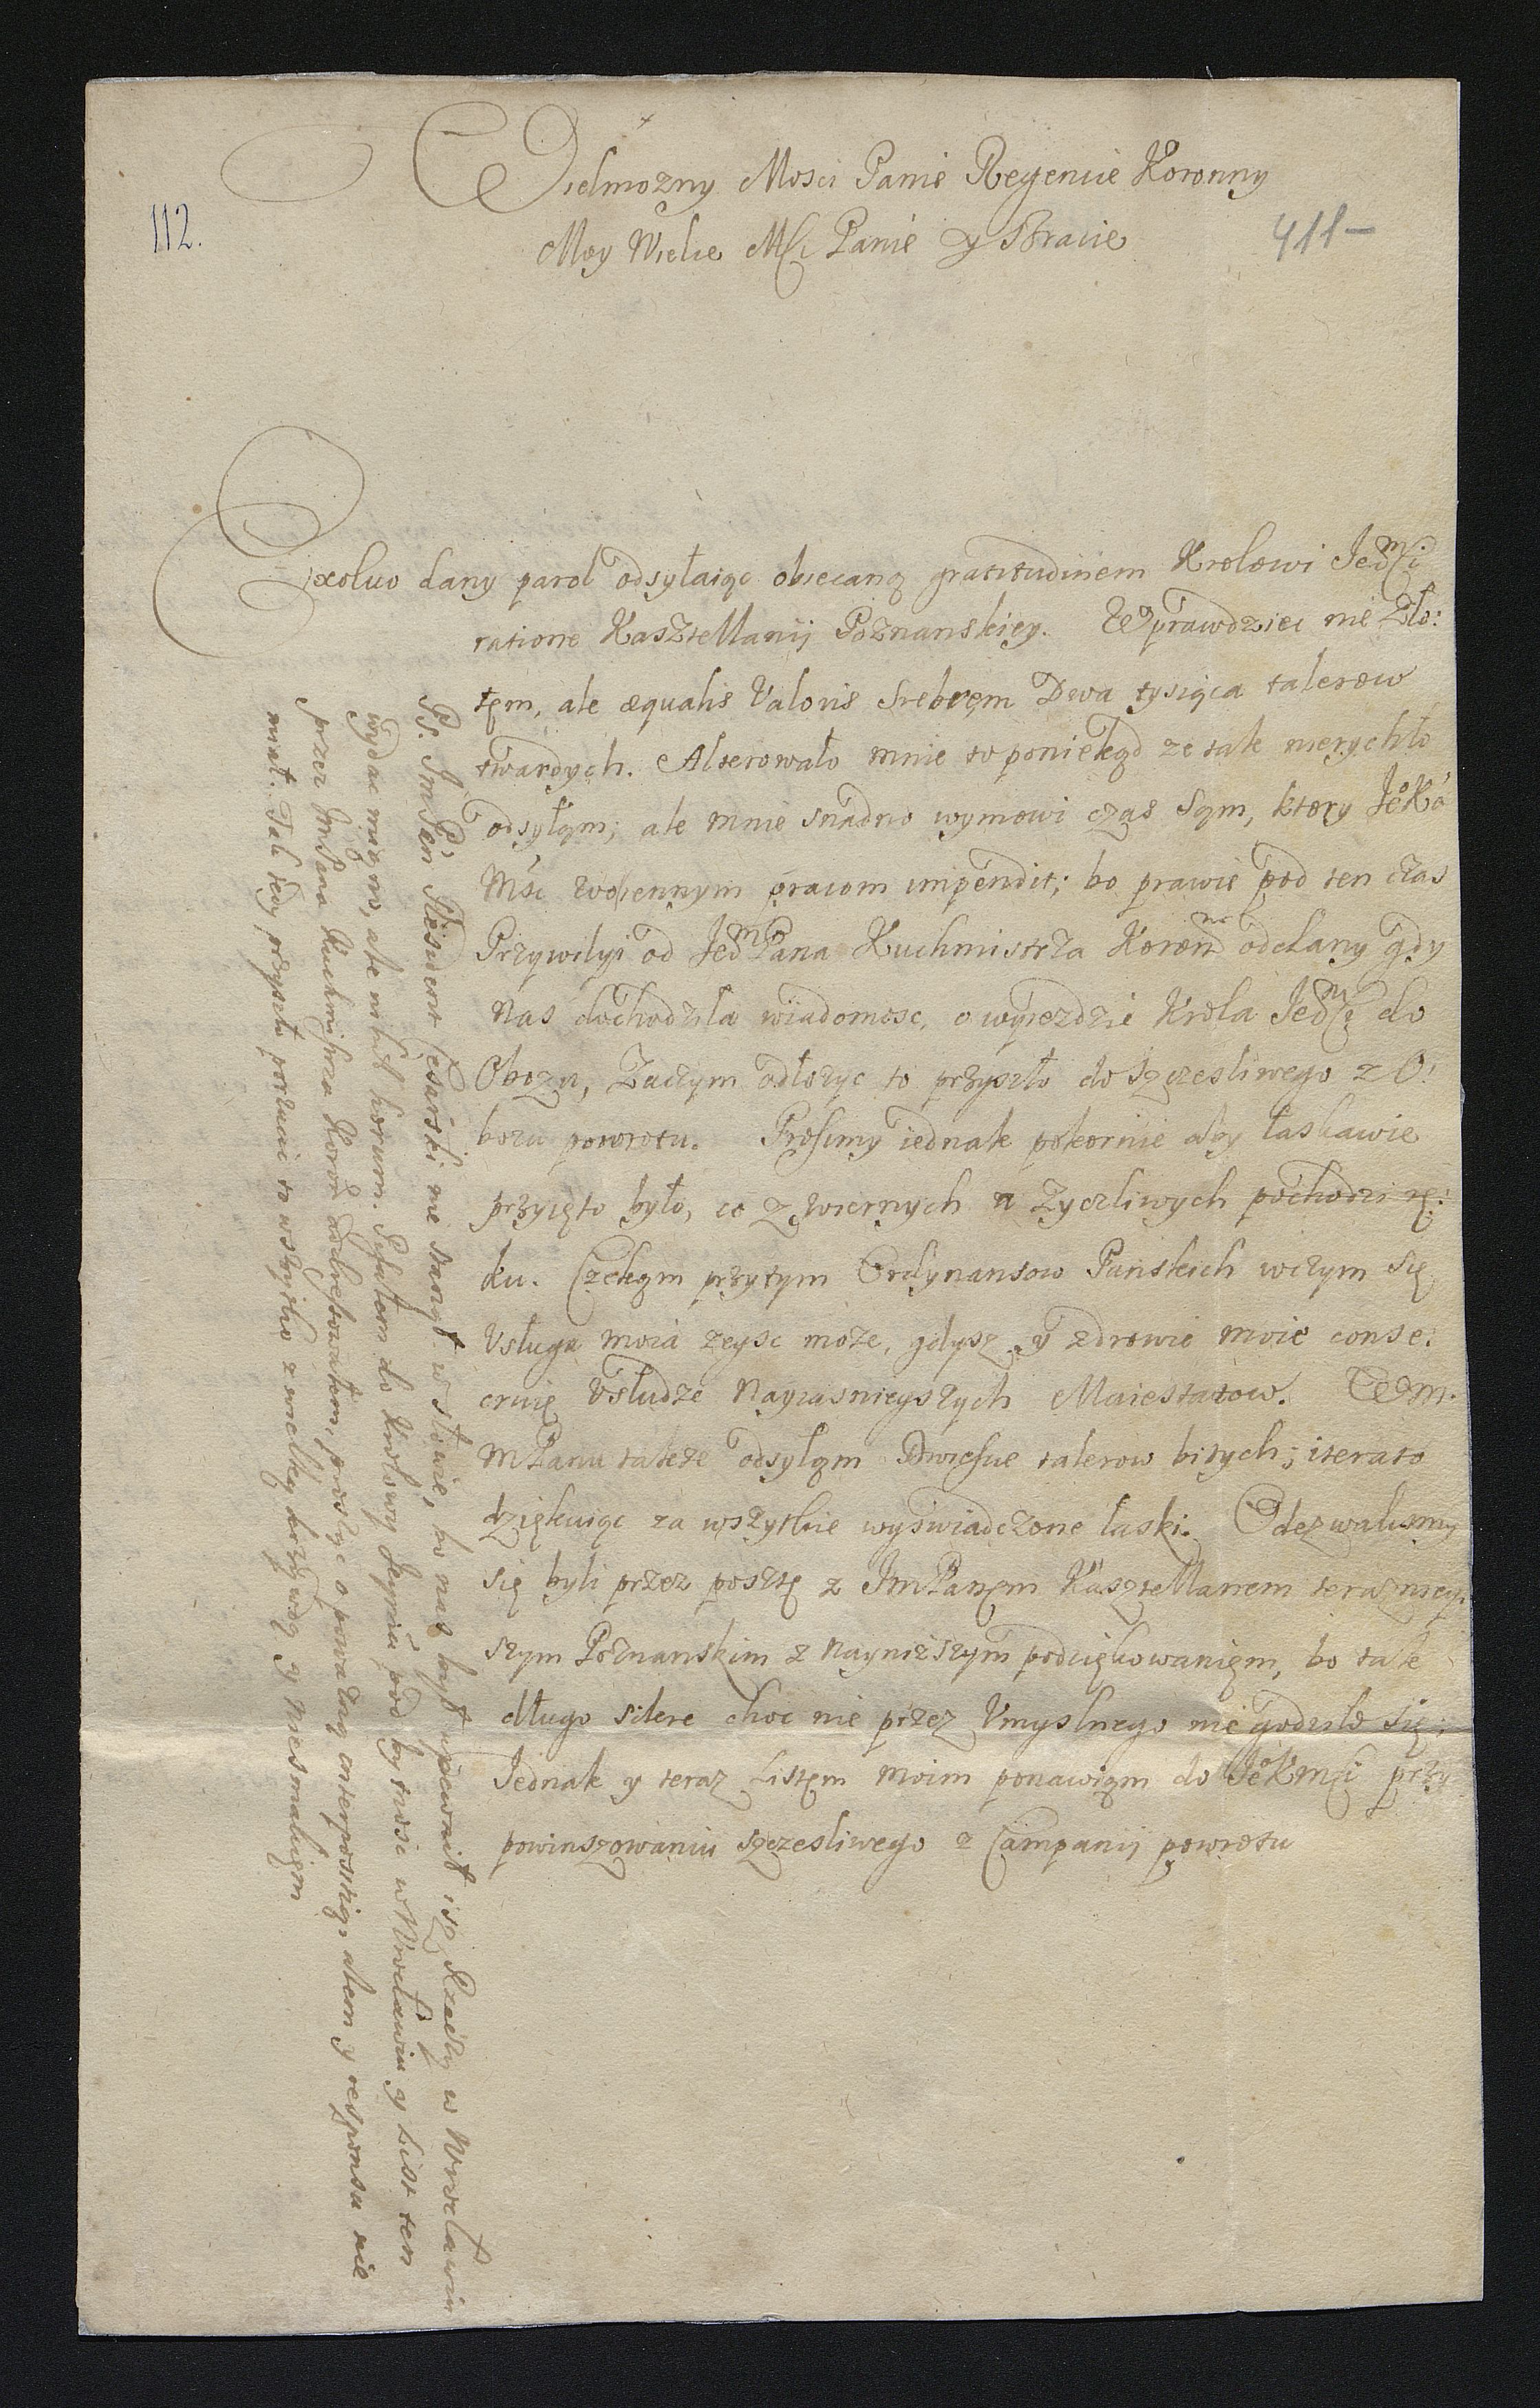 Wielmozny Mosci Panie Regencie Koronny
112.
Moy Wielce Msci Panie y Bracie
411-
Exoluo dany parol odsyłaiąc obiecaną gratitudinem Krolowi Jeomsci
ratione Kasztellanij Poznanskiey. Wprawdziec nie Zło:
tęm, ale æqualis Valoris Srebręm Dwa tysiąca talerow
twardych. Alterowało mnie to poniekąd ze tak nierychło
odsyłąm; ale mnie snadno wymowi czas sąm, ktory JeoKo
Msc woiennym pracom impendit; bo prawie pod ten czas
Przywilyi od JeomPana Kuchmistrza Koronno oddany gdy
nas dochodzyla wiadomosc, o wyiezdzie Krola Jeomsci do
Obozu, Zaczym odłozyc to przyszło do szczesliwego z O:
bozu powrotu. Prosimy iednak pokornie aby łaskawie
przyięto było, co z wiernych a zyczliwych pochodzi rę:
ku. Czekąm przytym Ordynansow Panskich wczym się
Vsługa moia zeysc moze, gdysz y zdrowie moie conse:
cruię Vsłudze Nayiasnieyszych Maiestatow. Wm.
mPanu takze odsyłąm Dwiescie talerow bitych; iterato
dziękuiąc za wszytkie wyswiadczone łaski. Odezwalismy
się byli przez posztę z JmPanęm Kasztellanem teraznieÿ:
szym Poznanskim z naynizszym podziękowanięm, bo tak
długo silere choc nie przez Vmyslnego nie godziło się;
Jednak y teraz Listęm moim ponawiąm do JeoKmsci przy
powinszowaniu szczesliwego z Campanij powrotu
Ps. Jm Pan Resident Cesarski nie stanął w słowie, bo nas był upewnił isz Rzeczy w Wrocławiu
wydac miąno, ale nihil horum. Pisałem do Krolowy Jeymci pod bytnosc w Wrocławiu y List ten
przez JmPana Kuchmistrza Koron addressowałem, prosząc o powazną interpositią, alem y responsu nie
miał. Tak tedy przyszło porzucic to wszytko z wielką krzywdą y niesmakięm